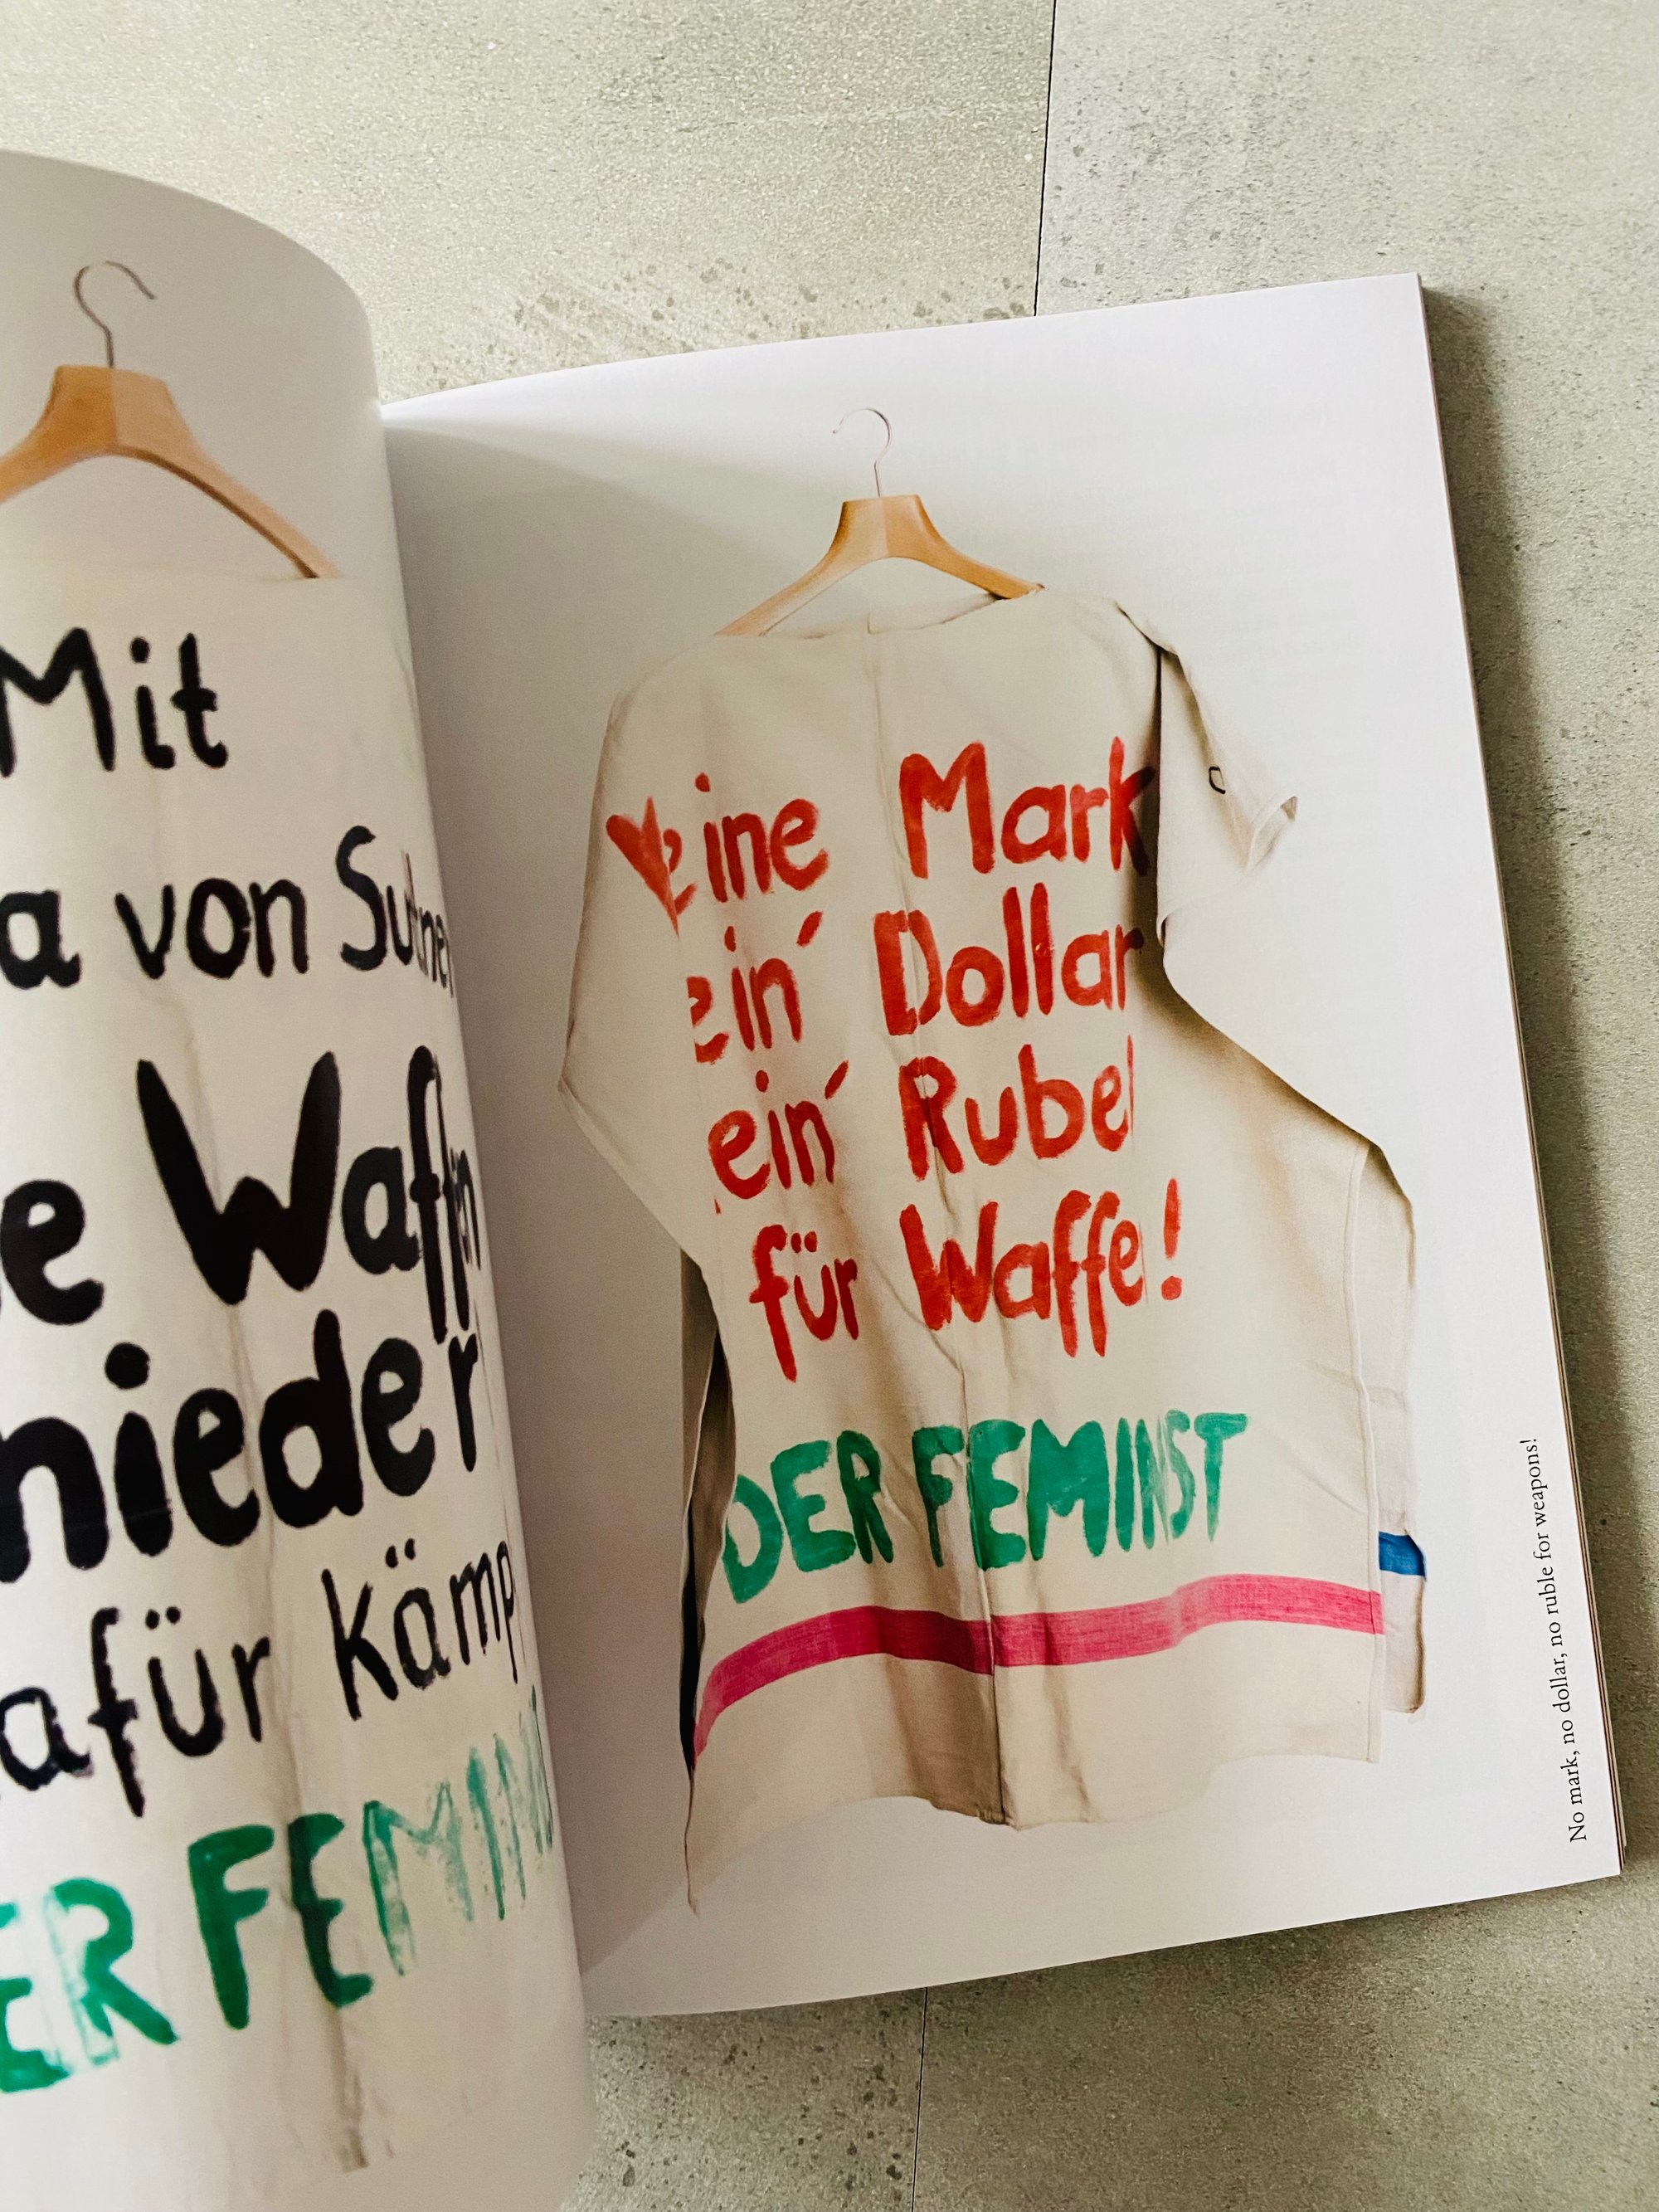 Mit
a von Suttner
e Waffen
nieder
afür kämp
ER FEMINI
Keine Mark
ein´ Dollar
ein´ Rubel
für Waffe!
DER FEMINST
No mark, no dollar, no ruble for weapons!